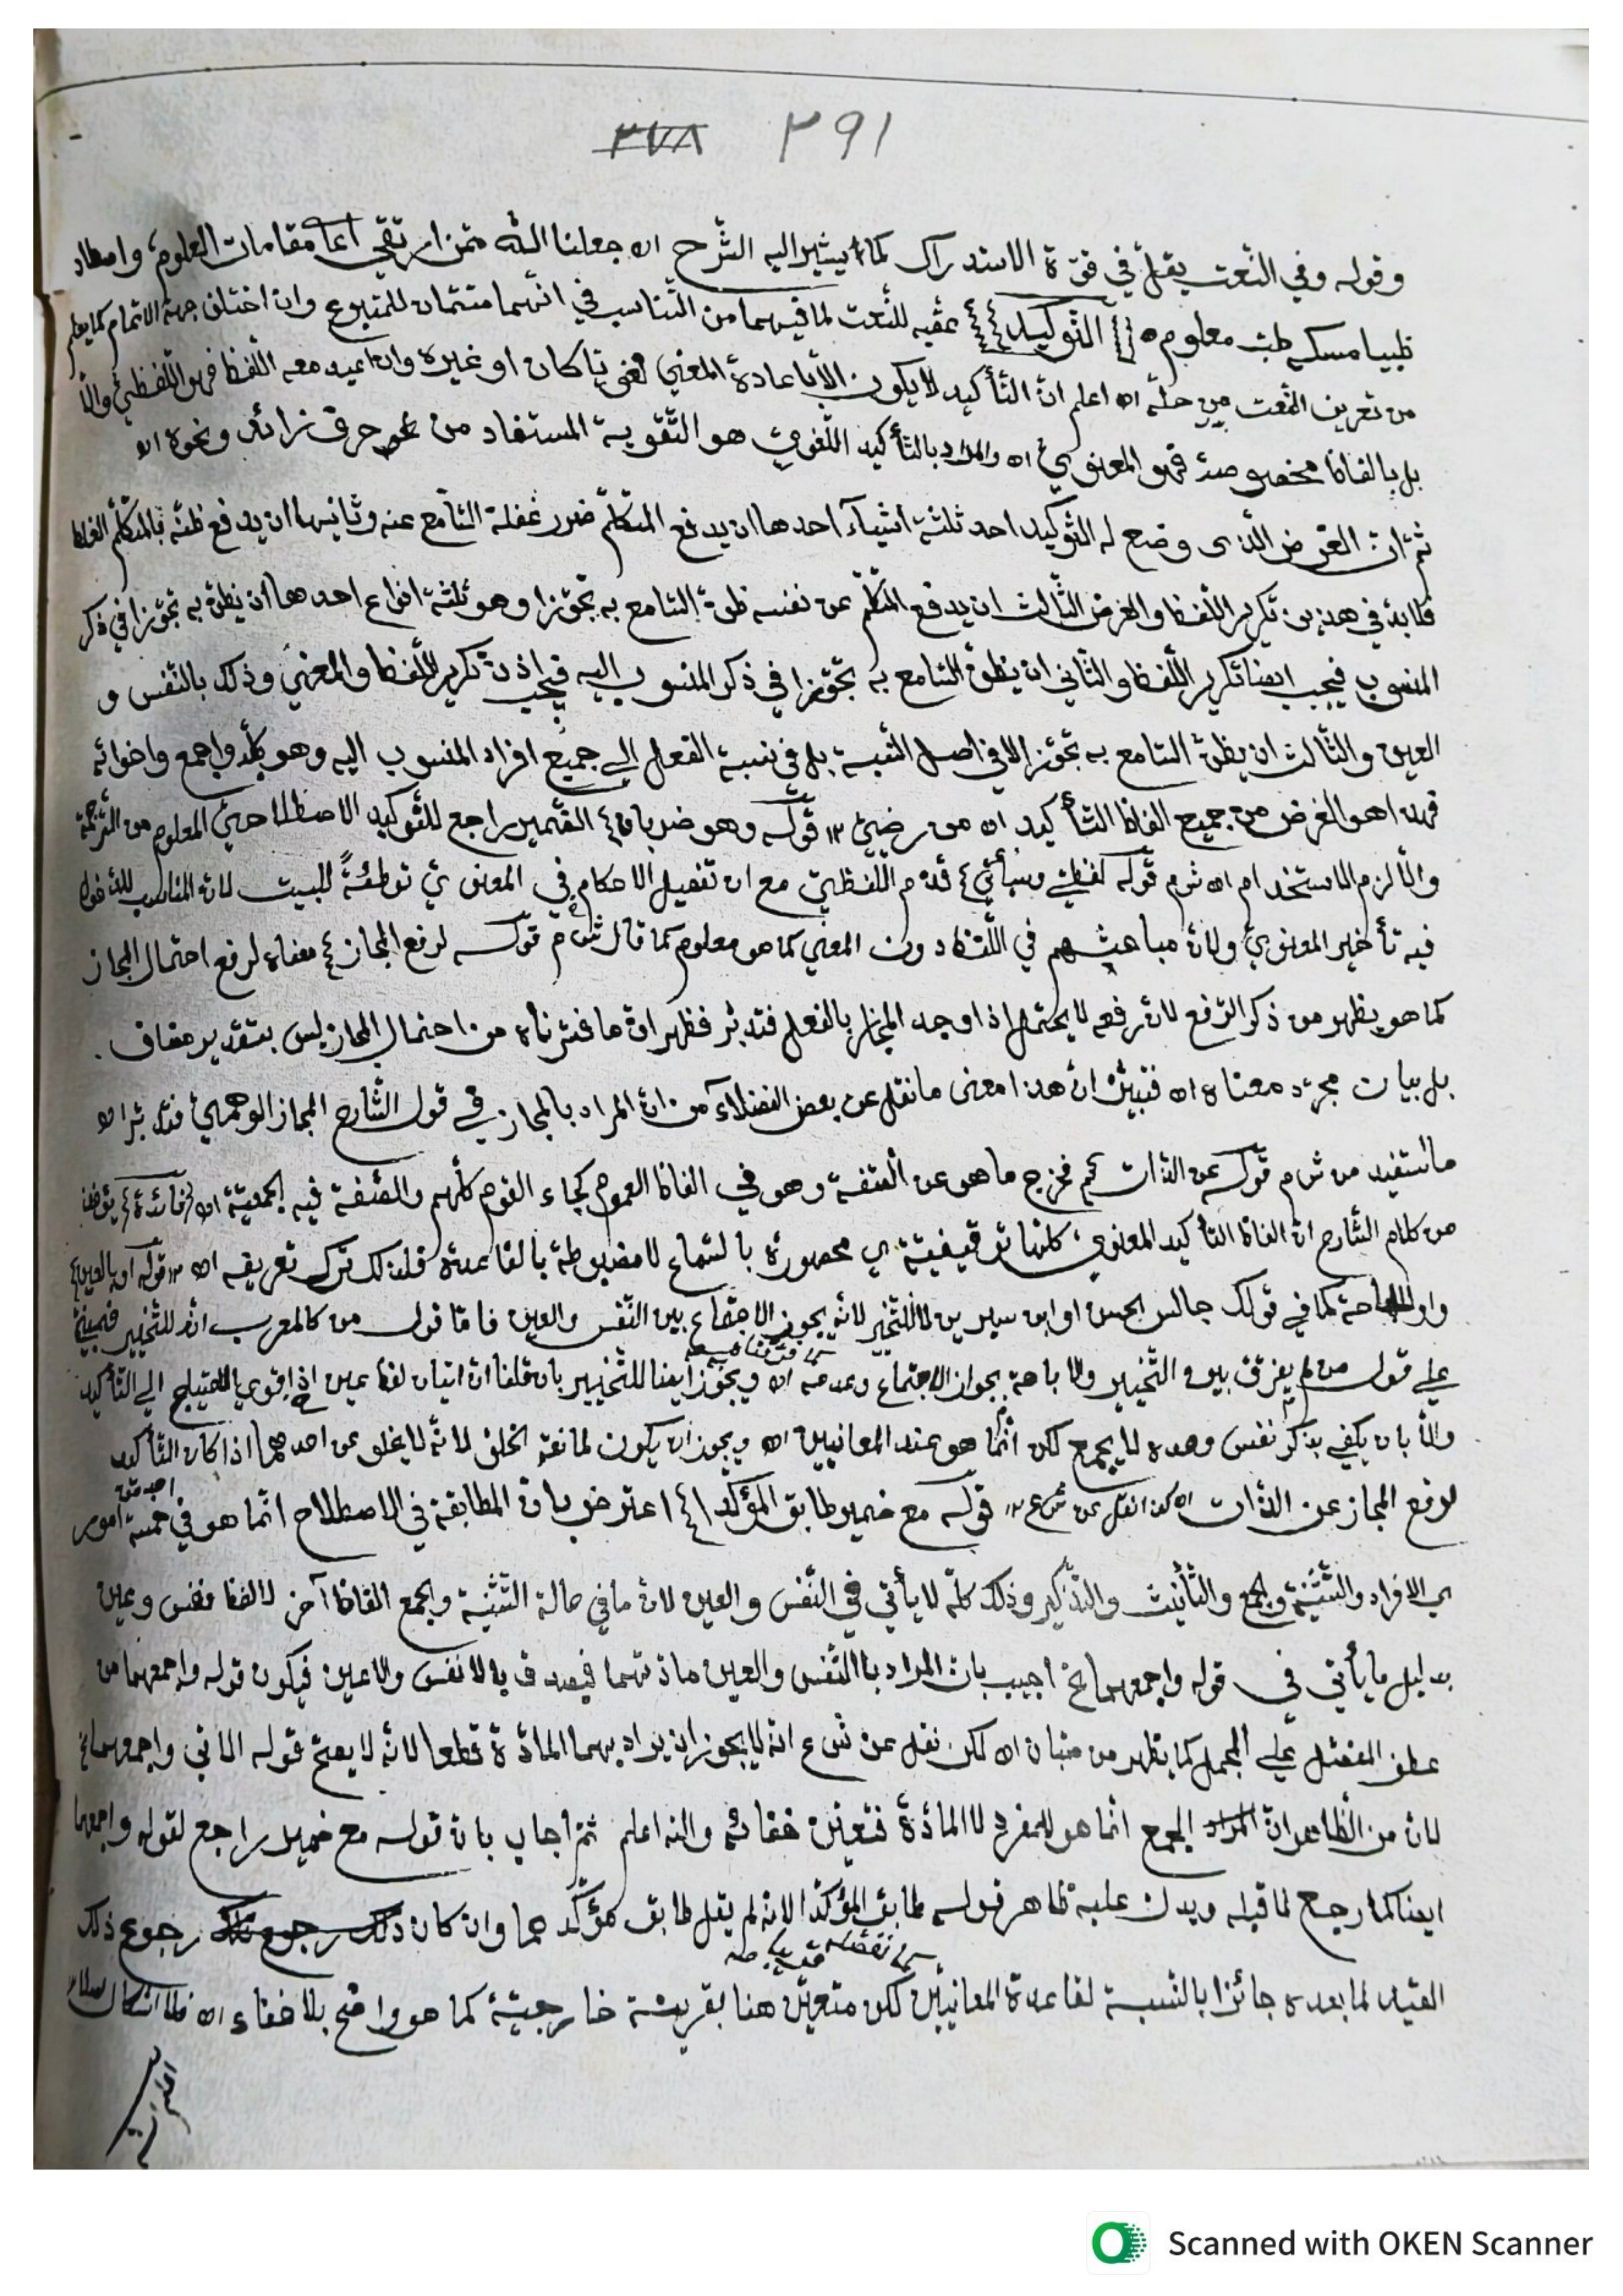 ٣٧٨ ٢٩١
وقوله وفي النعت يقل في قوّة الاستدراك كما يشير اليه الشّرح اه جعلنا اللّه ممّن ارتقي مقامات العلوم، واصطاد
ظبيا مسكه طيب معلوم التّوكيد عقّبه للنّعت لما فيهما من التّناسب في انّهما متمّمان للمتبوع وان اختلف جهة الاتمام كما يعلم
من تعريف النّعت من حلّه اه اعلم انّ التّأكيد لا يكون الّا باعادة المعني لغويّا كان او غيره وان اعيد معه اللّفظ فهو اللّفظيّ والّا
بل بالفاظ مخصوصة فهو المعنويّ اه والمراد بالتأكيد اللّغويّ هو التّقوية المستفاد من نحو حرف زائد ونحوه اه
ثمّ انّ الغرض الّذى وضع له التّوكيد احد ثلثة اشيآء احدها ان يدفع المتكلّم ضرر غفلة السّامع عنه وثانيها ان يدفع ظنّه بالمتكلّم الغلط
فلا بدّ في هذين تكرير اللّفظ والغرض الثّالث ان يدفع المتكلّم عن نفسه ظنّ السّامع به تجوّزا وهو ثلثة انواع احدها ان يظنّ به تجوّزا في ذكر
المنسوب فيجب ايضا تكرير اللّفظ والثّاني ان يظنّ السّامع به تجوّزا في ذكر المنسوب اليه فيجب اذ ذ تكرير اللّفظ والمعني وذلك بالنّفس و
العين والثّالث ان يظنّ السّامع به تجوّزا لا في اصل النّسبة بل في نسبة الفعل الي جميع افراد المنسوب اليه وهو بكلّه واجمع واخواته
فهذا هو الغرض من جميع الفاظ التّأكيد اه من رضيّ ١٢ قوله وهو ضربان الضّمير راجع للتّوكيد الاصطلاحيّ المعلوم من التّرجمة
والّا لزم الاستخدام اه ش م قوله لفظيّ وسيأتي قدّم اللّفظيّ مع ان تفصيل الاحكام في المعنويّ توطئةً للبيت لانّ المناسب للدّخول
فيه تأخير المعنويّ ولانّ مباحثهم في اللّفظ دون المعني كما هو معلوم كما قال ش م قوله لرفع المجاز معناه لرفع احتمال المجاز
كما هو يظهر من ذكر الرّفع لانّ رفعه لا يحتمل اذا وجد المجاز بالفعل فتدبّر فظهر انّ ما فسّرناه من احتمال المجاز ليس بتقدير مضاف .
بل بيان مجرّد معناه اه فتبيّن انّ هذا معنى ما نقل عن بعض الفضلآء من انّ المراد بالمجاز في قول الشّارح المجاز الوهميّ فتدبّر اه
ما استفيد من ش م قوله عن الذّات فخرج ما هو عن الصّفة وهو في الفاظ العموم كجاء القوم كلّهم والصّفة فيه الجمعيّة اه
من كلام الشّارح انّ الفاظ التّأكيد المعنويّ، كلّها توقيفيّة ى محصورة بالسّماع لا مضبوطة بالقاعدة فلذلك ترك تعريفه اه ١٢ قوله او بالعين
كما في قولك جالس الحسن او ابن سيرين لا للتّخيير لانّه يجوز الاجتماع بين النّفس والعين فامّا قول من كالمعرب انّه للتّخيير فمبنيّ
علي قول من لم يفرّق بين التّخيير والاباحة بجواز الاجتماع وعدمه اه ويجوز ايضا للتّخيير بان قلنا انّ اتيان لفظ عين اذا قوي الاحتياج الي التّأكيد
والّا بان يكفي بذكر نفس وحده لا يجمع لكن انّما هو عند المعانيين اه ويجوز ان يكون لمانعة الخلوّ لانّه لا يخلو عن احدهما اذا كان التّأكيد
لرفع المجاز عن الذّات اه كذا نقل عن ش ع ١٢ قوله مع ضمير طابق المؤكّدا اعترض بانّ المطابقة في الاصطلاح انّما هو في خمسة امور
ى الافراد والتّثنية والجمع والتّأنيث والتّذكير وذلك كلّه لا يأتي في النّفس والعين لانّ ما في حالة التّثنية والجمع الفاظ آخر لا لفظ نفس وعين
بدليل ما يأتي في قوله واجمعهما الخ اجيب بان المراد باالنّفس والعين مادّتهما فيصدق بالانفس والاعين فيكون قوله واجمعهما من
عطف المفصّل علي المجمل كما يظهر من صبّان اه لكن نقل عن ش ع انّه لا يجوز ان يراد بهما المادّة قطعا لانّه لا يصحّ قوله الاتي واجمعهما الخ
لانّ من الظّاهر انّ الجمع انّما هو للمفرد لا المادّة فتعيّن واللّه اعلم ثمّ اجاب بانّ قوله مع ضمير راجع لقوله واجمعهما
ايضا كما رجع لما قبله ويدلّ عليه ظاهر قوله طابق المؤكّدا لانّه لم يقل طابق مؤكّدهما وان كان رجوع ذلك
القيد لما بعده جائزا بالنّسبة لقاعدة المعانيّين لكن متعيّن هنا بقرينة خارجيّة كما هو واضح بلا خفاء اه فلا اشكال
Scanned with OKEN Scanner